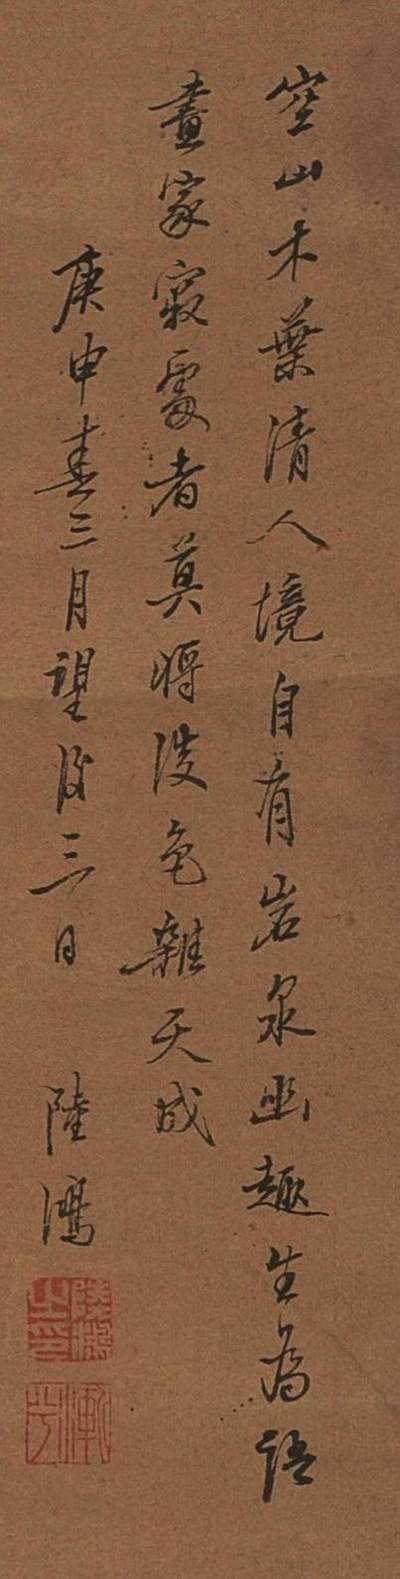 空山木葉清人境自有岩泉幽趣生為語
畫家寂處者莫將設色雜天成
庚申春三月望後三日 陸鴻